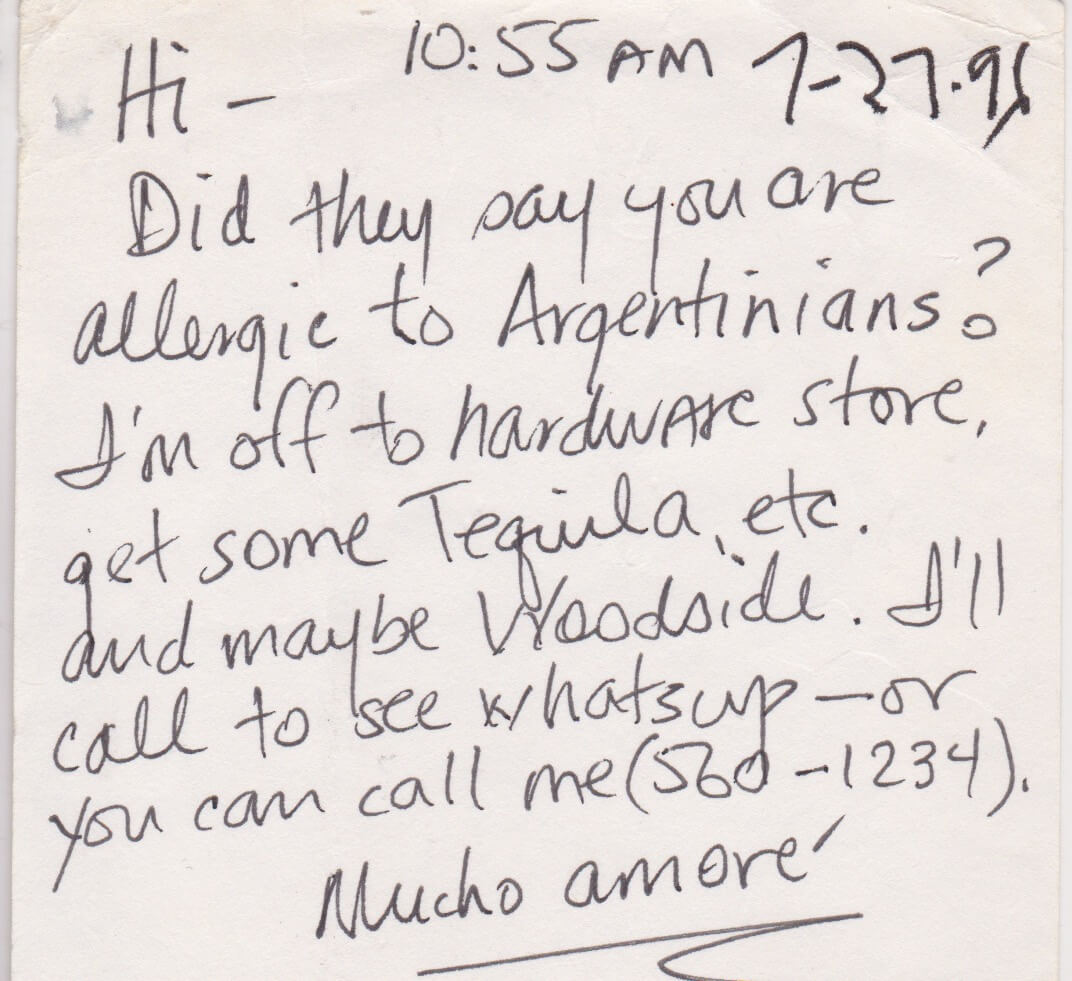 10:55 AM 7-27-98
Hi -
Did they say you are
allergic to Argentinians?
I'm off to hardware store,
get some Tequila, etc.
and maybe Woodside. I'll
call to see whatsup - or
you can call me (560-1234).
Mucho amoré